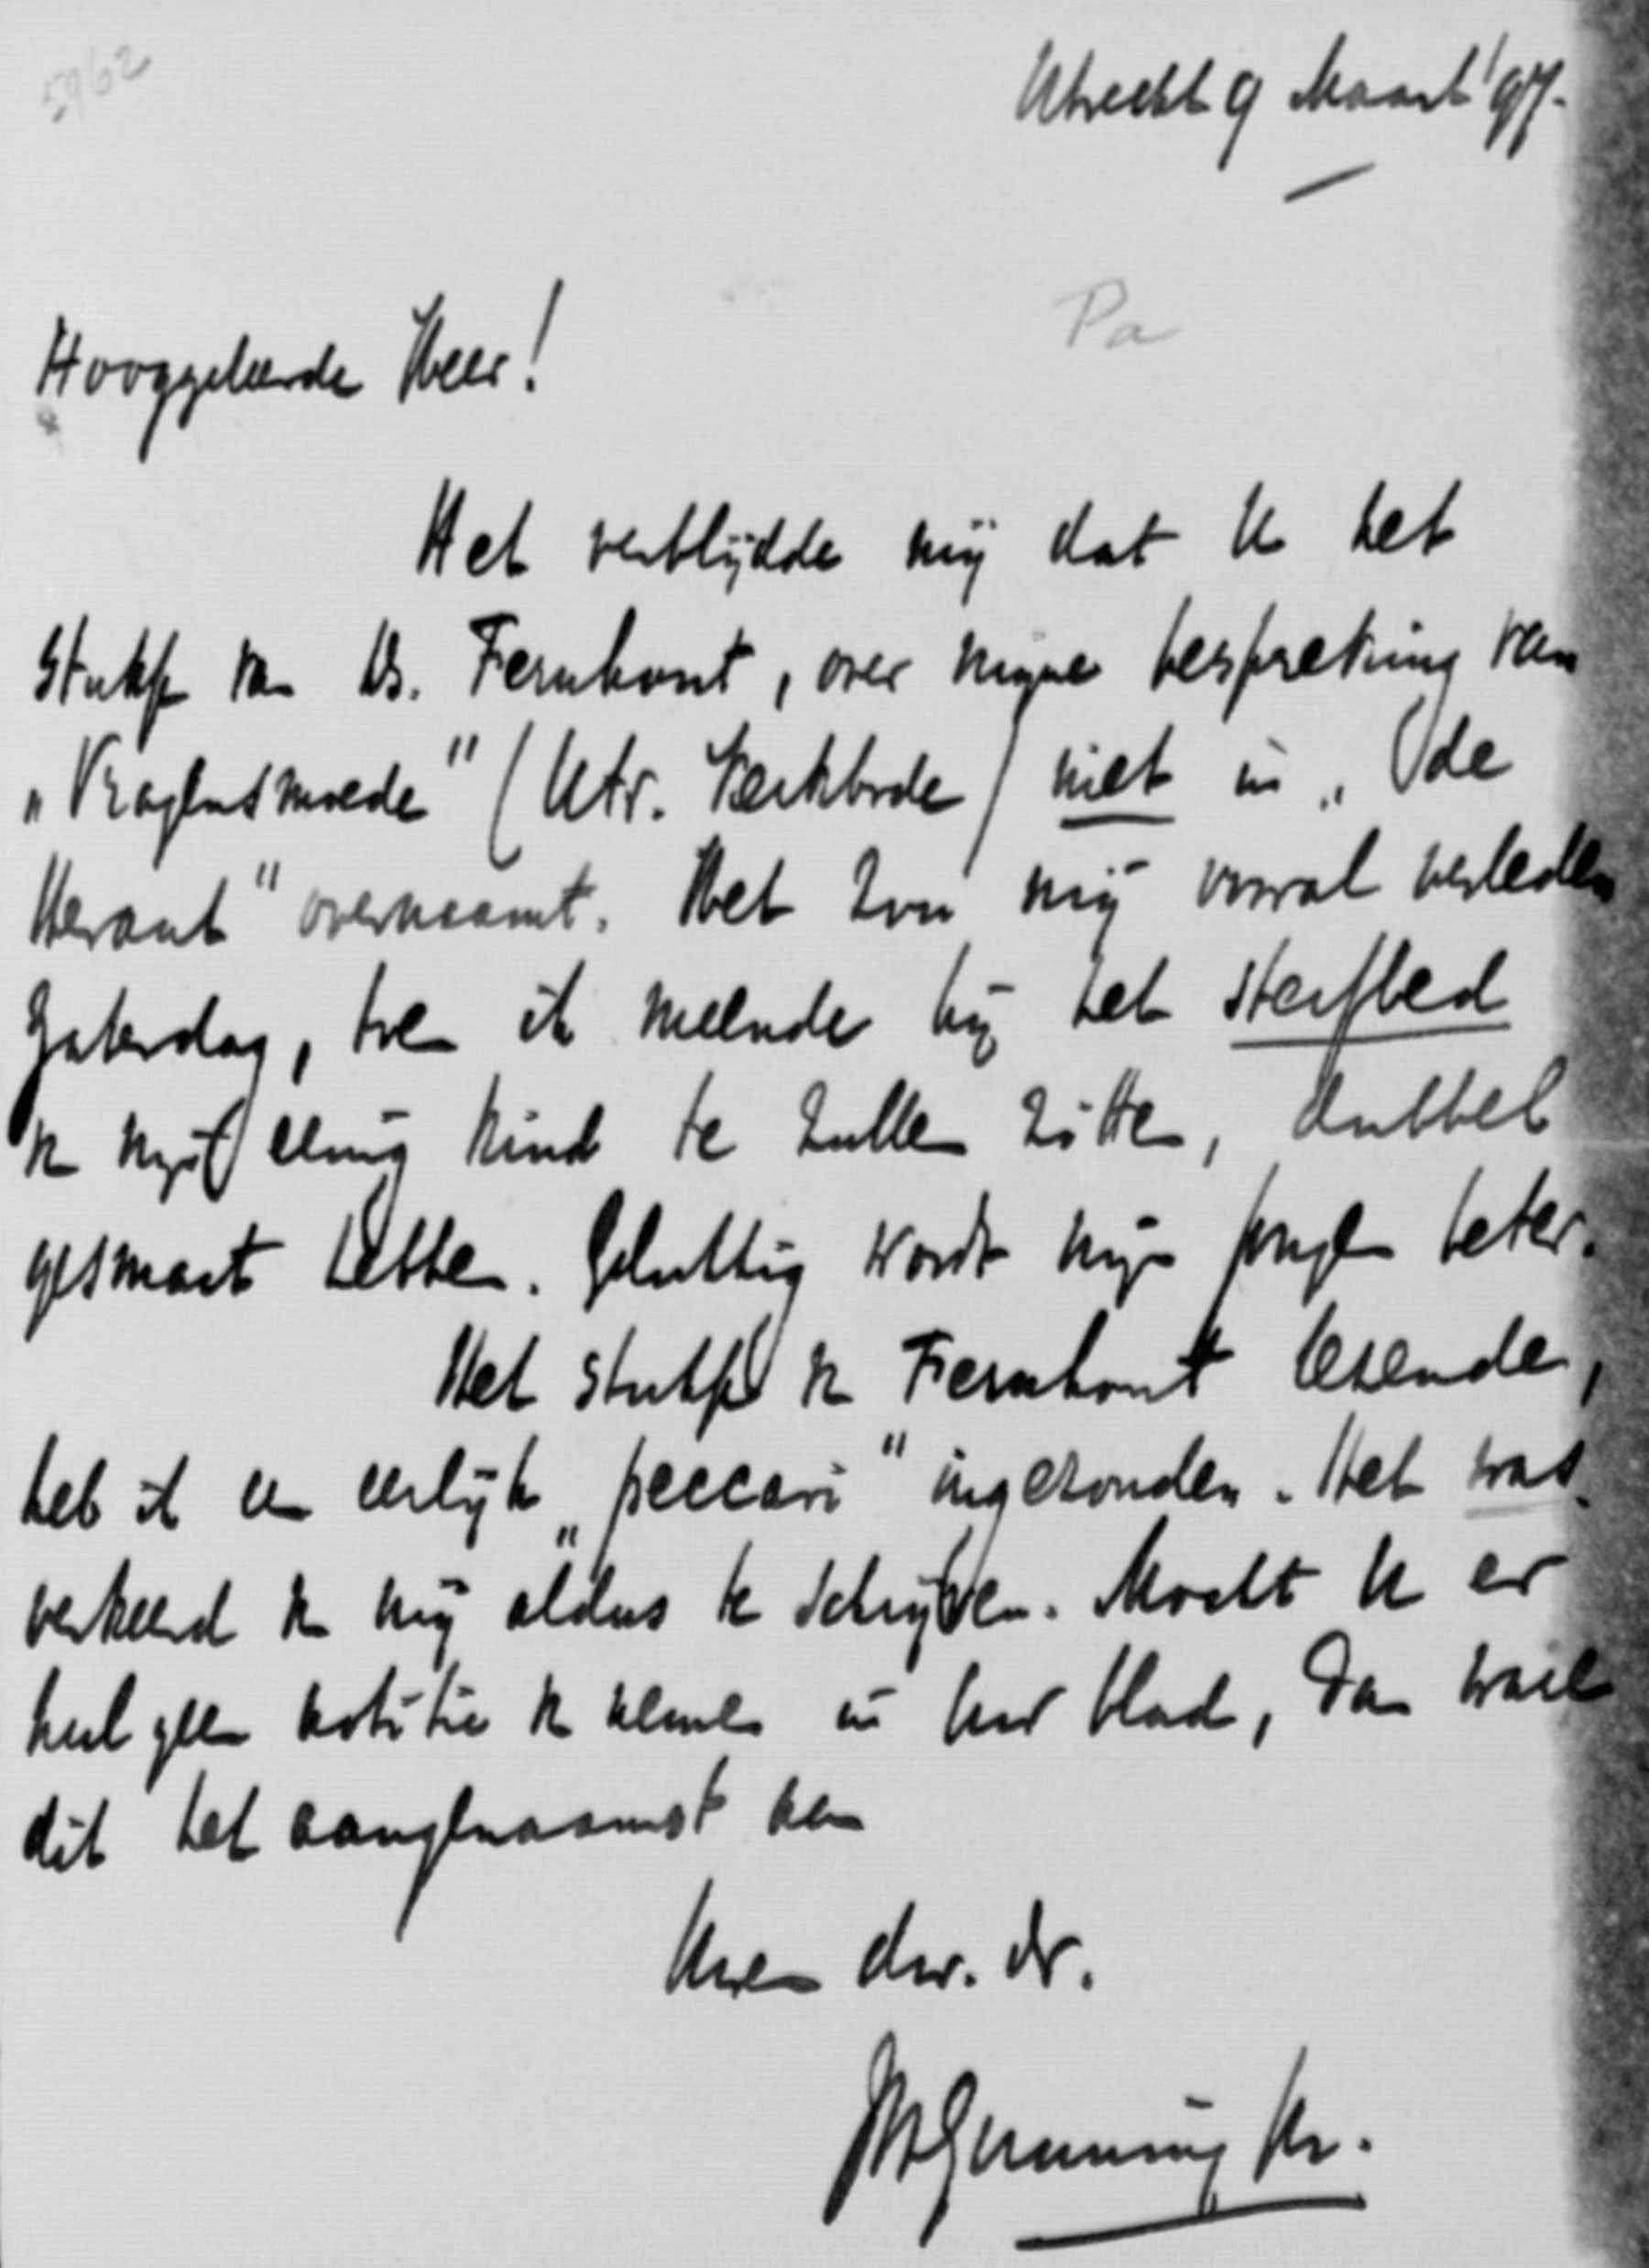 5962
Utrecht 9 Maart '97.
Pa
Hooggeleerde Heer!
Het verblijdde mij dat U het
stukje van Ds. Fernhout, over mijne bespreking van
„Vragensmoede" (Utr. Kerkbode) niet in „De
Heraut" overnaamt. Het zou mij vooral verleden
Zaterdag, toen ik meende bij het sterfbed
v. mijn eenig kind te zullen zitten, dubbel
gesmart hebben. Gelukkig wordt mijn jongen beter.
Het stukje v. Fernhout lezende,
heb ik een eerlijk „peccavi" ingezonden. Het was
verkeerd v. mij aldus te schrijven. Mocht U er
heel geen notitie v. nemen in Uw blad, dan ware
dit het aangenaamst aan
Uwen dw. dr.
JH Gunning Jr.